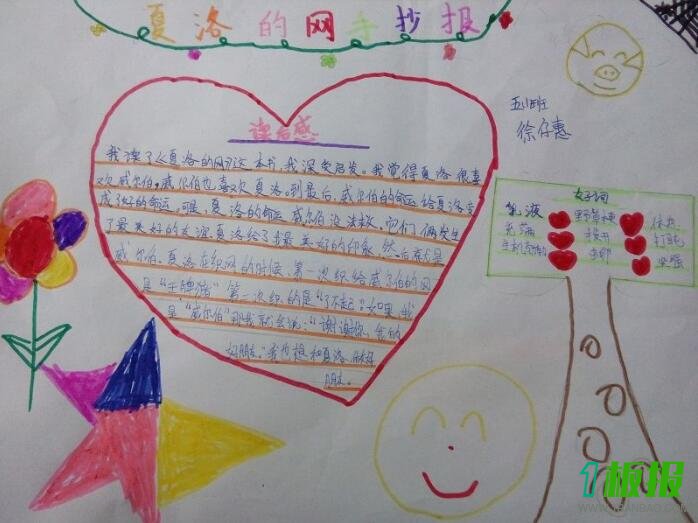 夏洛的网手抄报
五(1)班
徐仔惠
读后感
我读了《夏洛的网》这本书,我深受启发。我觉得夏洛很喜
欢威尔伯,威尔伯也喜欢夏洛。到最后,威尔伯的命运给夏洛变
成了好的命运,可是,夏洛的命运威尔伯没法救。它们俩发生
了最美好的友谊,夏洛给了我最美好的印象,然后就是
威尔伯。夏洛在织网的时候,第一次织给威尔伯的网
是“王牌猪”第二次织的是“了不起”。如果我
是“威尔伯”那我就会说:“谢谢你,我的
好朋友。”我也想和夏洛做好
朋友。
好词
乳液
充满
拨开
打盹
坚强
1板报
WWW.1BANBAO.COM